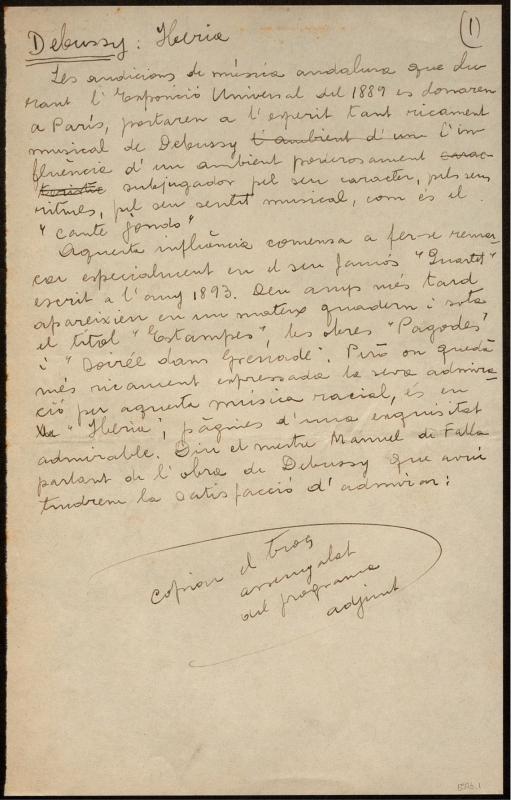 (1)
Debussy: Iberia
Les audicions de música andalusa que du-
rant l'Exposició Universal del 1889 es donaren
a París, portaren a l'esperit tant ricament
musical de Debussy l'ambient d'una l'in-
fluència d'un ambient poderosament carac-
teristic subjugador pel seu caracter, pels seus
ritmes, pel seu sentit musical, com és el
"cante jondo"
Aquesta influència comensa a fer-se remar-
car especialment en el seu famós "Quartet"
escrit a l'any 1893. Deu anys més tard
apareixien en un mateix quadern i sota
el titol "Estampes", les obres "Pagodes"
i "Soirée dans Grenade". Però on quedà
més ricament expressada la seva admira-
ció per aquesta musica racial, és en
"Iberia", pàgines d'una exquisitat
admirable. Diu el mestre Manuel de Falla
parlant de l'obra de Debussy que avui
tindrem la satisfacció d'admirar:
copiar el tros
assenyalat
del programa
adjunt